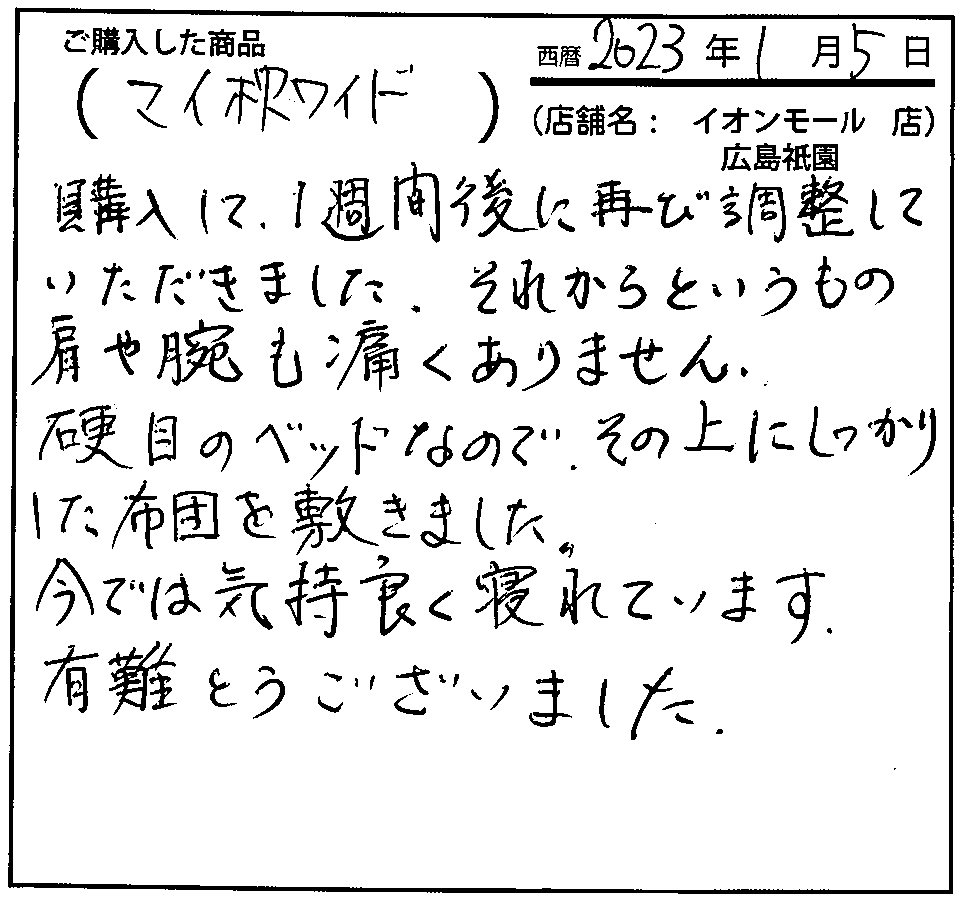 ご購入した商品
西暦 2023 年 1 月 5 日
(マイ枕ワイド)
(店舗名: イオンモール 店)
広島祇園
購入して、1週間後に再び調整して
いただきました。それからというもの
肩や腕も痛くありません。
硬目のベッドなので、その上にしっかり
した布団を敷きました。
今では気持良く寝れています。
有難とうございました。